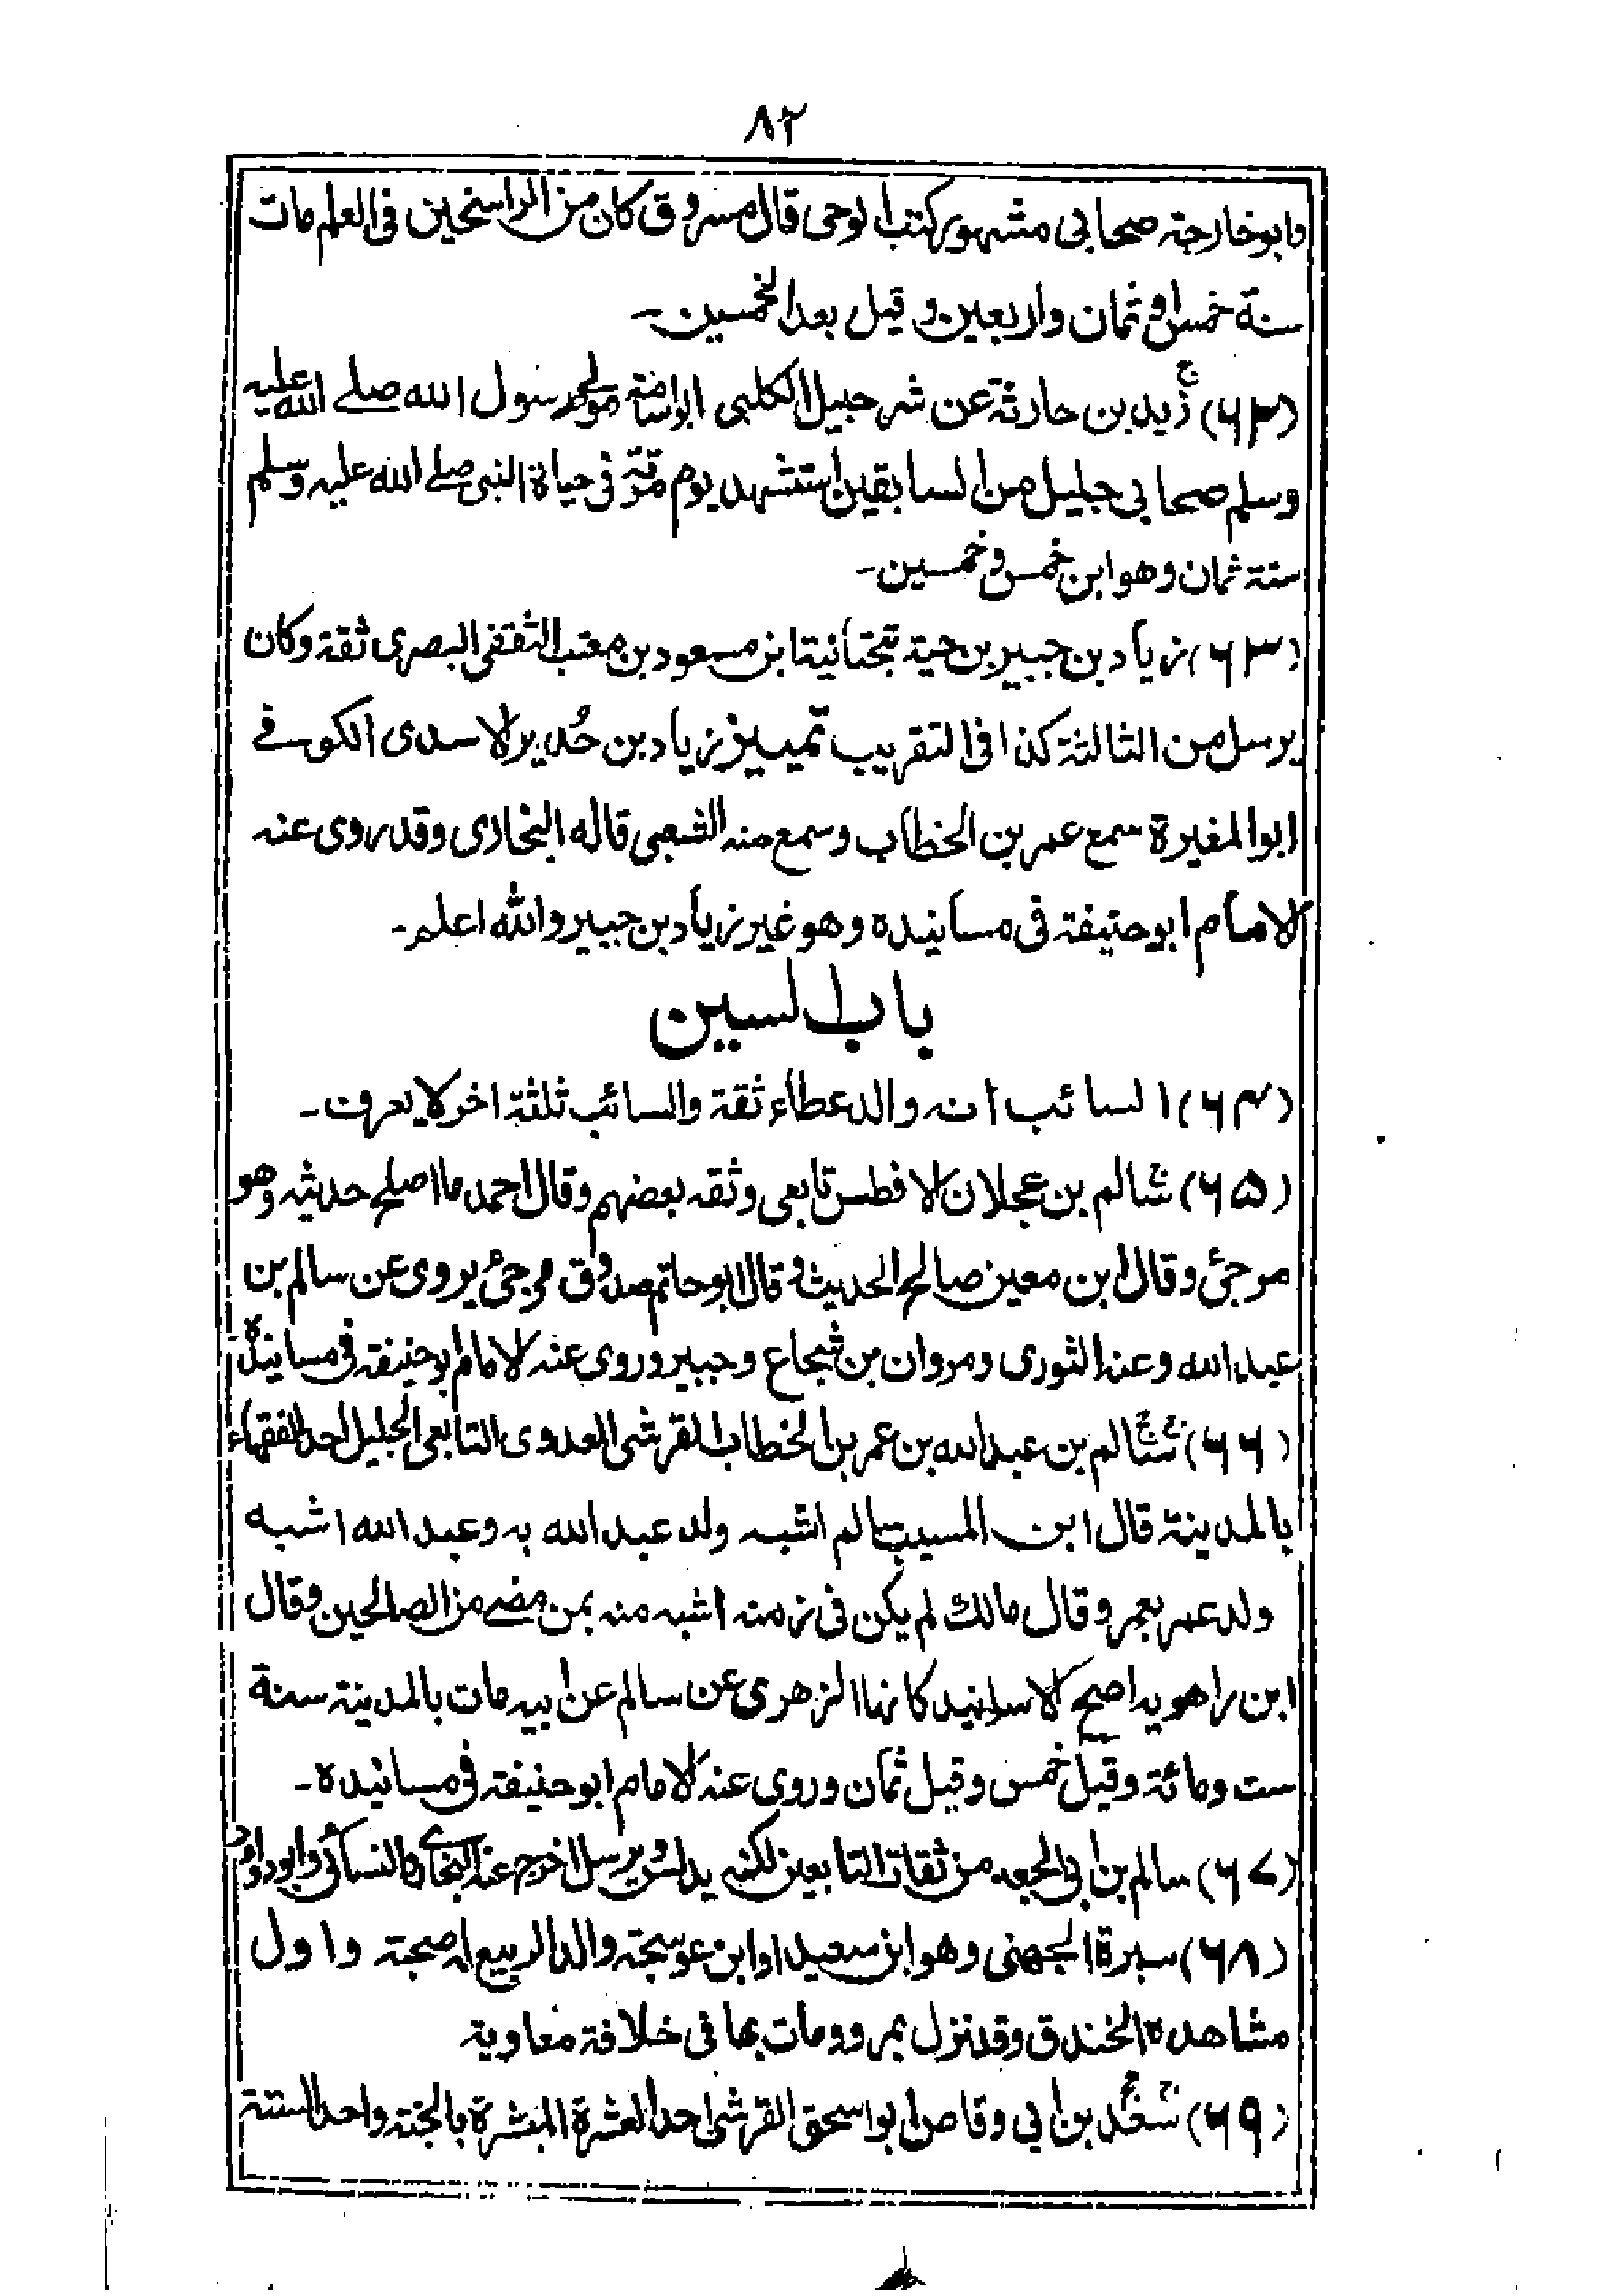 ٨٢
وابوخارجة صحابي مشهور كتب الوحى قال مسروق كان من الراسخين فى العلم مات
سنة خمس او ثمان واربعين و قيل بعد الخمسين۔
(٦٢) زيد بن حارثة عن شرحبيل الكلبى ابواسامة مولى رسول الله صلے الله عليه
وسلم صحابى جليل من السابقين استشهد يوم موتة فى حياة النبى صلے الله عليه وسلم
سنة ثمان وهو ابن خمس وخمسين۔
(٦٣) زياد بن جبير بن حية بتحتانية ابن مسعود بن معتب الثقفى البصرى ثقة وكان
يرسل من الثالثة كذا فى التقريب تمييز زياد بن حُدير الاسدى الكوفے
ابوالمغيرة سمع عمر بن الخطاب وسمع منه الشعبى قاله البخارى وقد روى عنه
الامام ابوحنيفة فى مسانيده وهو غير زياد بن جبير والله اعلم۔
باب السين
(٦٤) السائب انه والد عطاء ثقة والسائب ثلثة اخر لا يعرف۔
(٦٥) سالم بن عجلان الافطس تابعى وثقه بعضهم وقال احمد ما اصلح حديثه وهو
مرجئ وقال ابن معين صالح الحديث و قال ابوحاتم صدوق مرجئ يروى عن سالم بن
عبدالله وعنه الثورى ومروان بن شجاع وجبير وروى عنه الامام ابوحنيفة فى مسانيده
(٦٦) سالم بن عبدالله بن عمر بن الخطاب القرشى العدوى التابعى الجليل احد الفقهاء
بالمدينة قال ابن المسيب سالم اشبه ولد عبدالله به وعبدالله اشبه
ولد عمر بعمر وقال مالك لم يكن فى زمنه اشبه منه بمن مضے من الصالحين وقال
ابن راهويه اصح الاسانيد كانها الزهرى عن سالم عن ابيه مات بالمدينة سنة
ست ومائة وقيل خمس وقيل ثمان وروى عنه الامام ابوحنيفة فى مسانيده۔
(٦٧) سالم بن ابى الجعد من ثقات التابعين لكنه يدلس و يرسل اخرج عنه البخارى والنسائى وابوداود
(٦٨) سبرة الجهنى وهو ابن سعيد او ابن عوسجة والد الربيع له صحبة واول
مشاهده الخندق وقد نزل بمرو ومات بها فى خلافة معاوية
(٦٩) سعد بن ابى وقاص ابواسحق القرشى احد العشرة المبشرة بالجنة واحد الستة